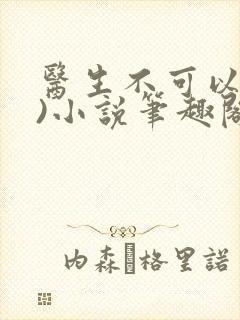 醫生不可以
)小説筆趣閣
内森·格里諾